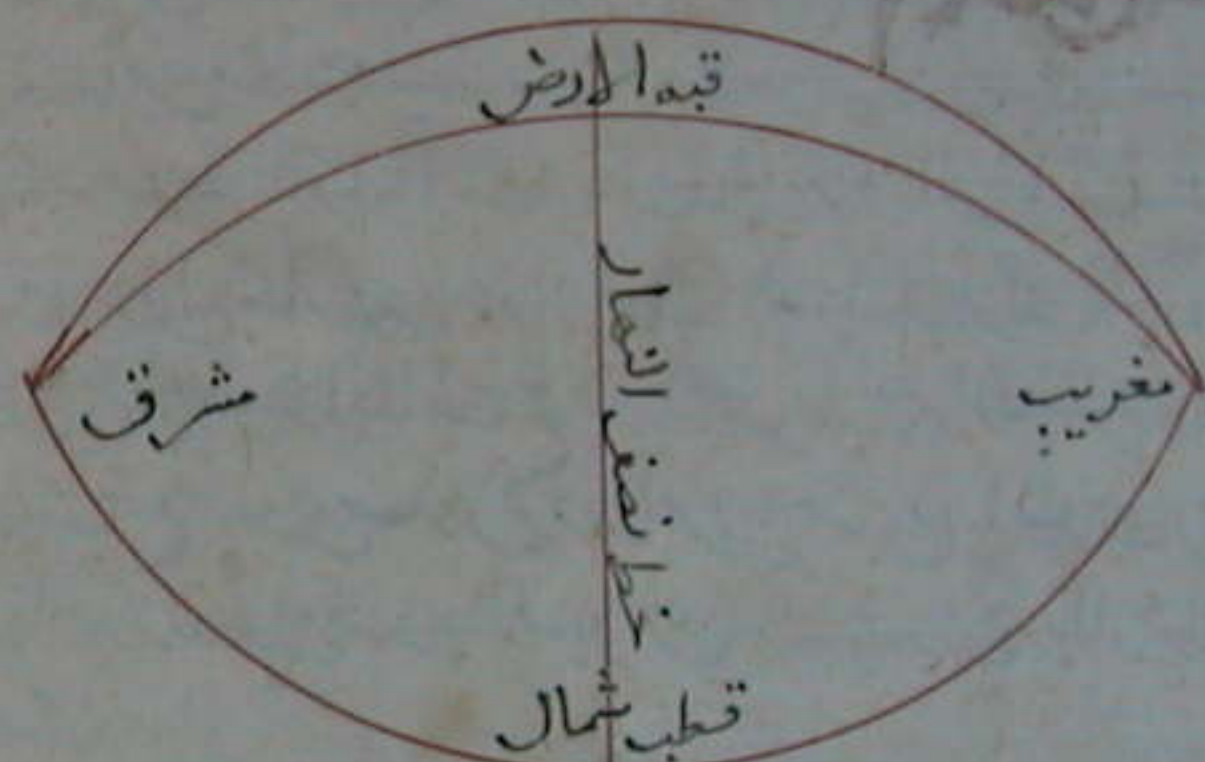 قبه الارض
خط نصف النهار
مغرب
مشرق
قطب شمال